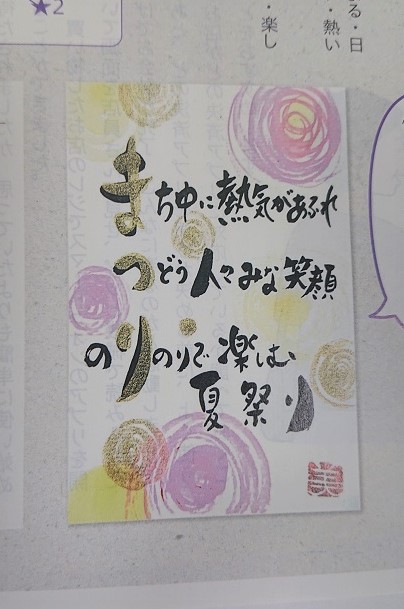 ★2
る・日
・熱い
・楽し
まち中に熱気があふれ
つどう人々みな笑顔
のりのりで楽しむ
夏祭り